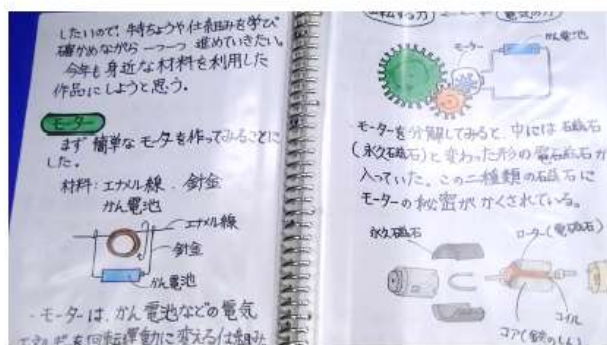 したいので、特ちょうや仕組みを学び
確かめながら 一つ一つ 進めていきたい。
今年も身近な材料を利用した
作品にしようと思う。
モーター
まず 簡単なモータを作ってみることに
した。
材料：エナメル線、針金
かん電池
エナメル線
針金
かん電池
・モーターは、かん電池などの電気
を回転運動に変える仕組み
モーター
かん電池
モーターを分解してみると、中には 磁石
(永久磁石)と変わった形の電磁石が
入っていた。この二種類の磁石に
モーターの秘密がかくされている。
永久磁石
ローター(電磁石)
コイル
コア(鉄のしん)